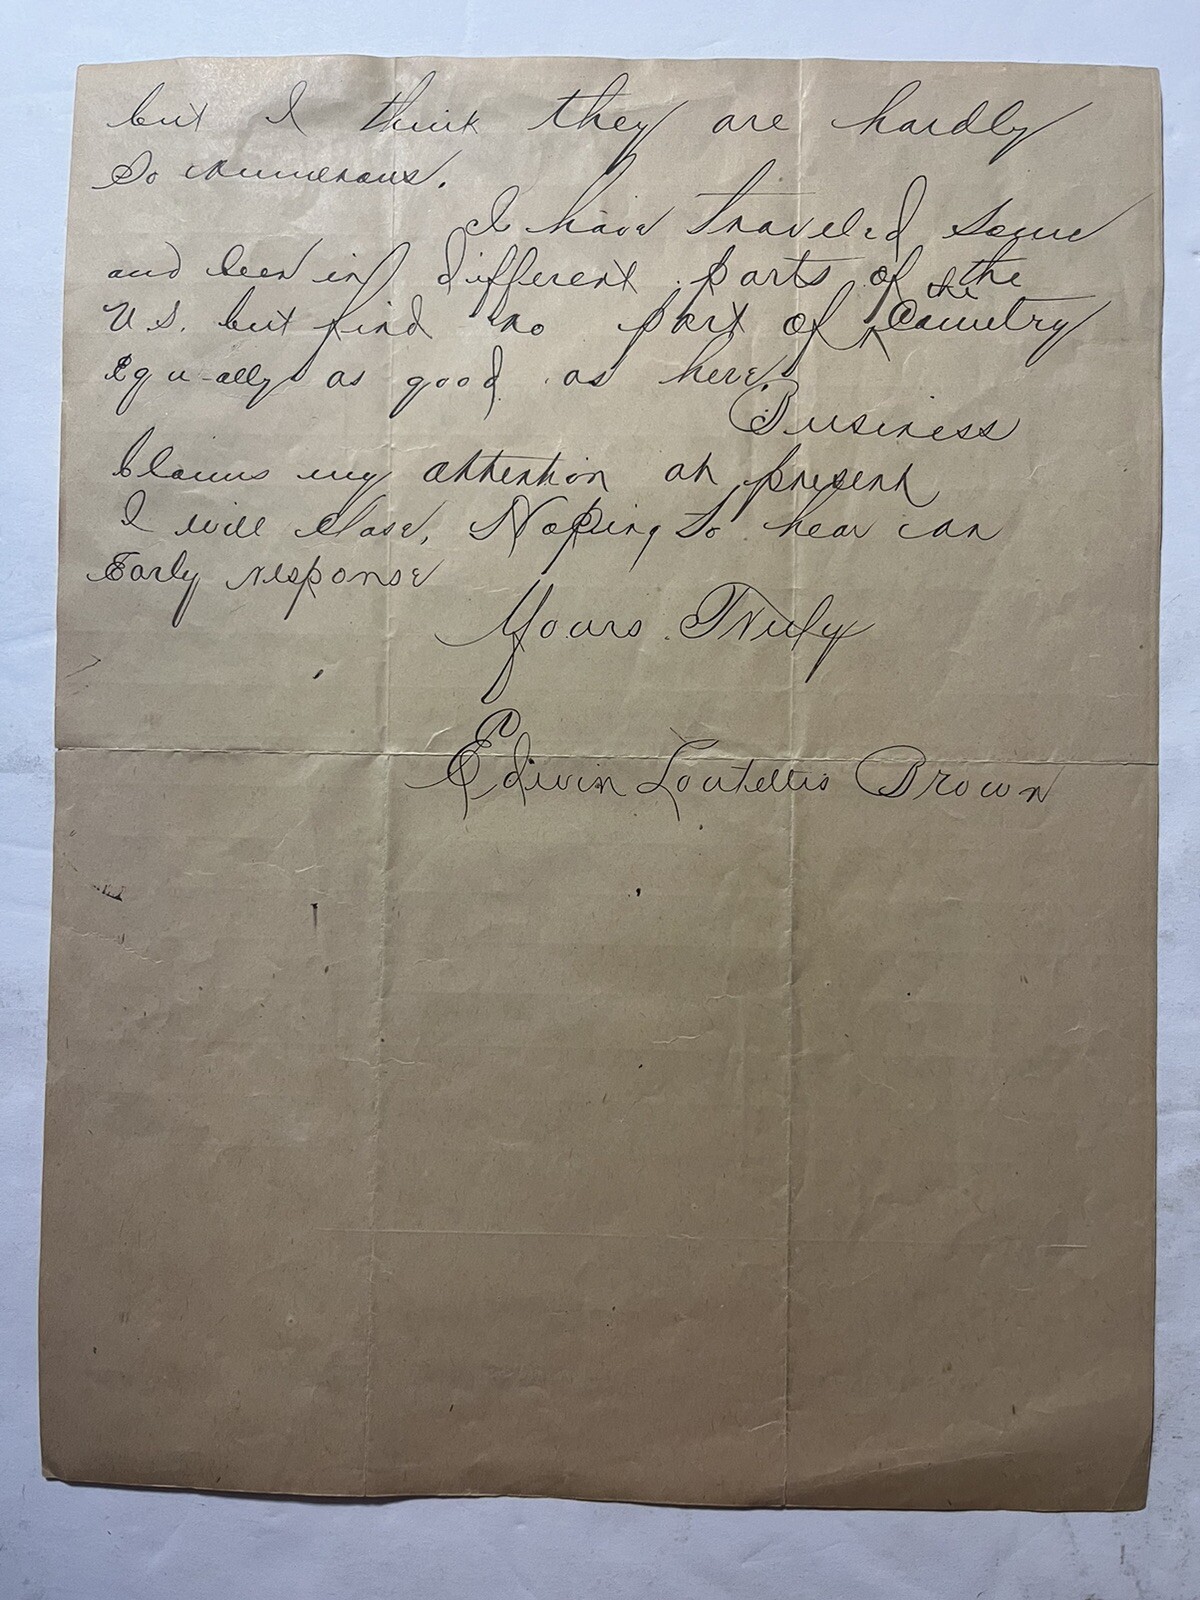 but I think they are hardly
So numerous.
I have traveled Some
and been in different parts of the
U.S. but find no part of the Country
Equ-ally as good as here.
Business
Claims my attention at present
I will close, Hoping to hear an
Early response
Yours Truly
Edwin Brown